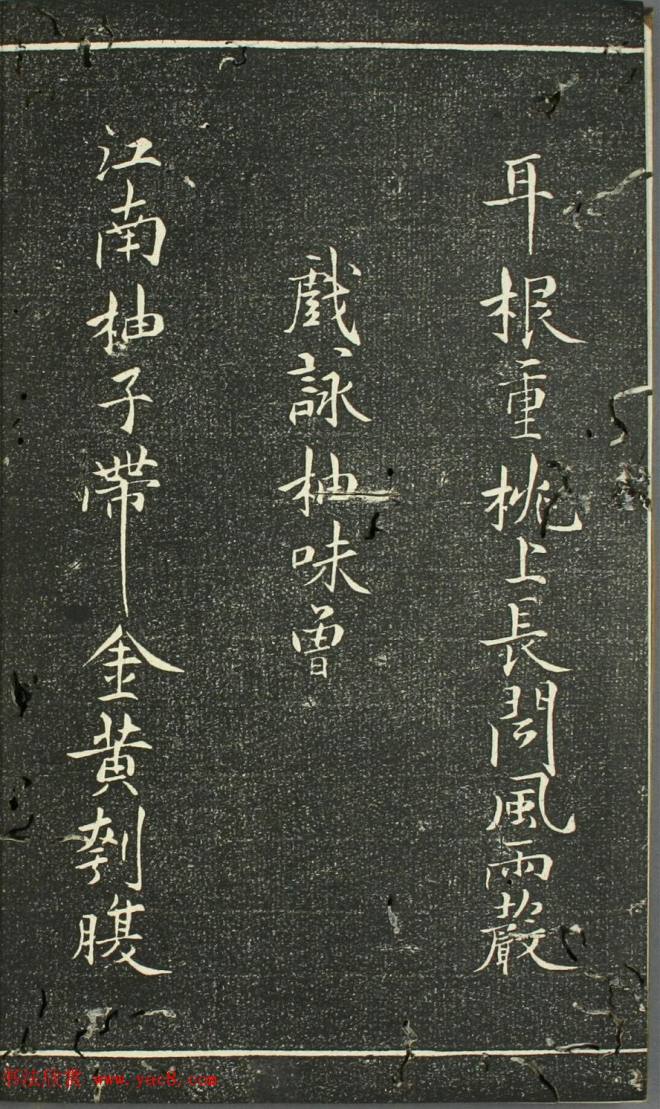 耳根重枕上長聞風雨嚴
戲詠柚味曾
江南柚子帶金黄刳腹
书法欣赏 www.yac8.com